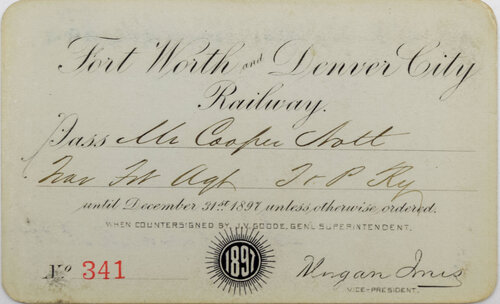 Fort Worth and Denver City
Railway.
Pass Mr Cooper Nott
Trav Frt Agt T & P Ry
until December 31st 1897 unless otherwise ordered.
WHEN COUNTERSIGNED BY J.V. GOODE, GENL SUPERINTENDENT.
1897
No 341
Morgan Jones
VICE-PRESIDENT.